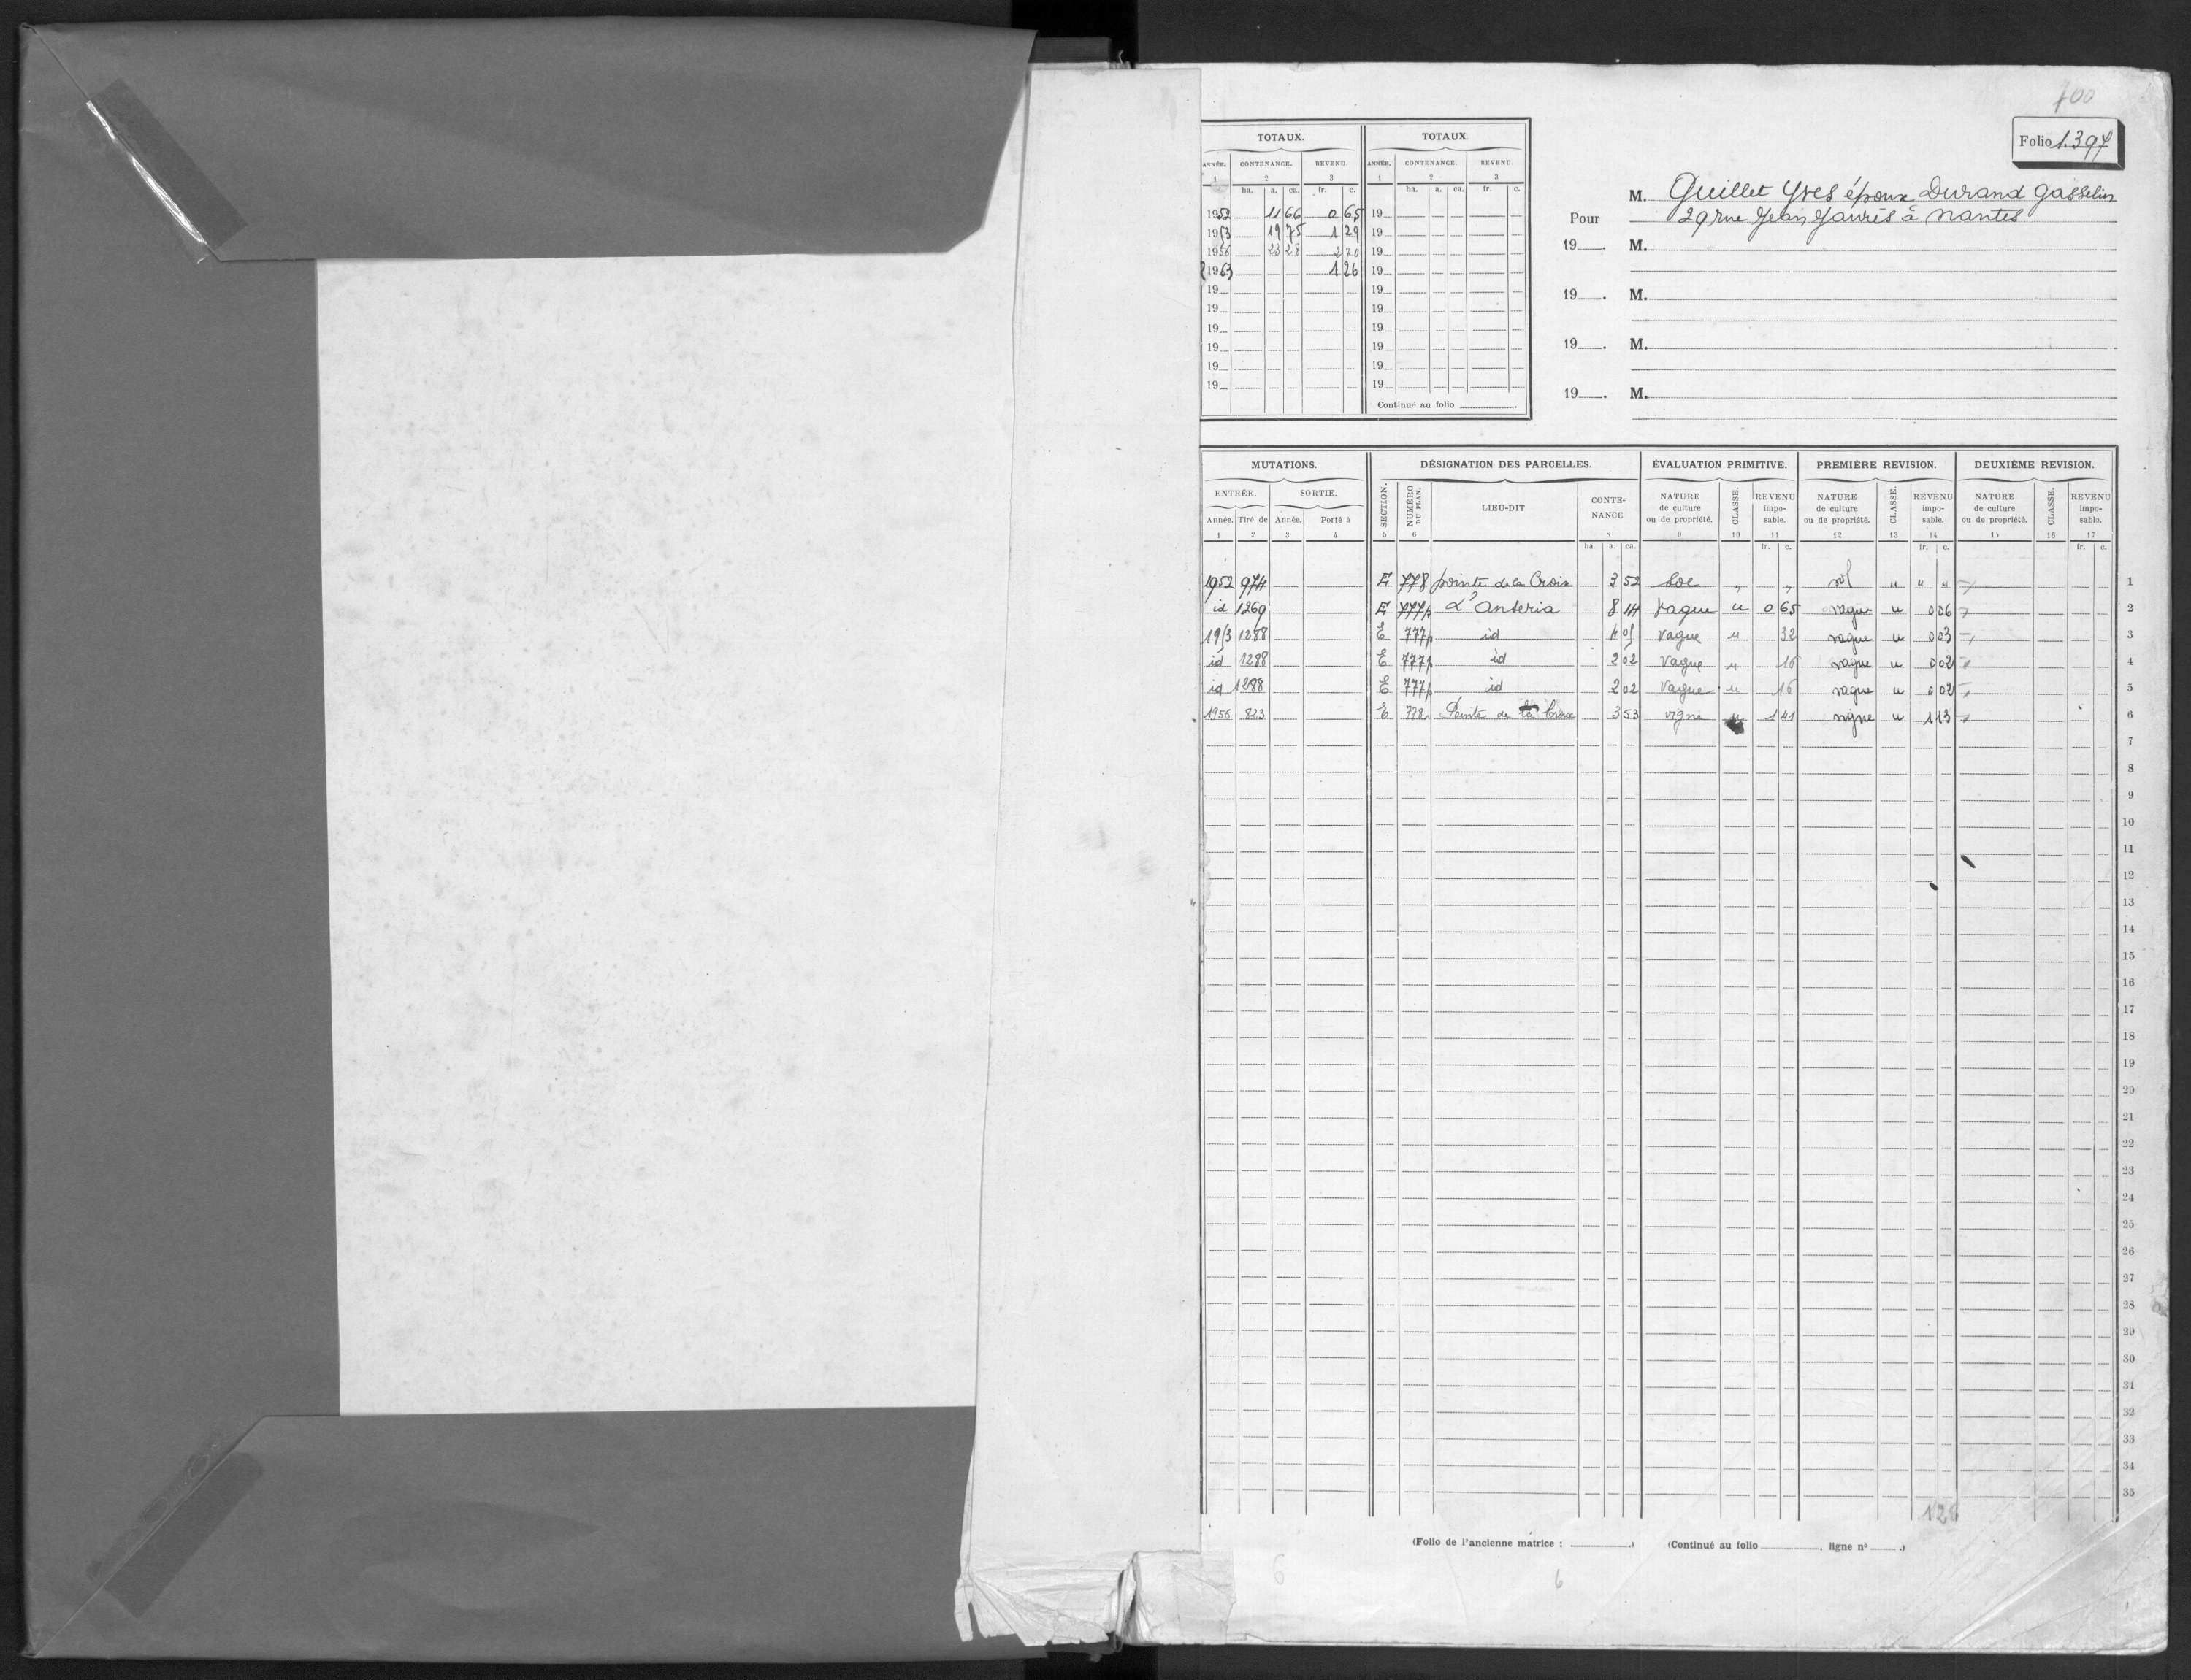 700
Folio 1.397
TOTAUX. TOTAUX
ANNÉE. CONTENANCE. REVENU. ANNÉE. CONTENANCE. REVENU
1 2 3 1 2 3
ha. a. ca. fr. c. ha. a. ca. fr. c.
M. Guillet Yves époux Durand Gasselin
Pour 29 rue Jean Jaurès à Nantes
1952 11 66 0 65 19
1953 19 75 1 29 19
1956 23 28 2 70 19
1963 1 26 19
19 19
19 19
19 19
19 19
19 19
19 19
Continué au folio
19 . M.
19 . M.
19 . M.
19 . M.
MUTATIONS. DÉSIGNATION DES PARCELLES. ÉVALUATION PRIMITIVE. PREMIÈRE REVISION. DEUXIÈME REVISION.
ENTRÉE. SORTIE. SECTION. NUMÉRO DU PLAN. LIEU-DIT CONTE-NANCE NATURE de culture ou de propriété. CLASSE. REVENU impo-sable. NATURE de culture ou de propriété. CLASSE. REVENU impo-sable. NATURE de culture ou de propriété. CLASSE. REVENU impo-sable.
Année. Tiré de Année. Porté à
1 2 3 4 5 6 8 9 10 11 12 13 14 15 16 17
ha. a. ca. fr. c. fr. c. fr. c.
1952 974 E 778 pointe de la Croix 3 52 Sol " " sol " " " 1
id 1269 E 777p L'Anseria 8 14 Vague " 0 65 vague " 0 06 2
1953 1288 E 777p id 4 05 vague " 32 vague " 0 03 3
id 1288 E 777p id 2 02 Vague " 16 vague " 0 02 4
id 1288 E 777p id 2 02 Vague " 16 vague " 0 02 5
1956 823 E 778 Pointe de la Croix 3 53 vigne " 1 41 vigne " 1 13 6
7
8
9
10
11
12
13
14
15
16
17
18
19
20
21
22
23
24
25
26
27
28
29
30
31
32
33
34
35
126
(Folio de l'ancienne matrice : .) (Continué au folio , ligne n° .)
6
6